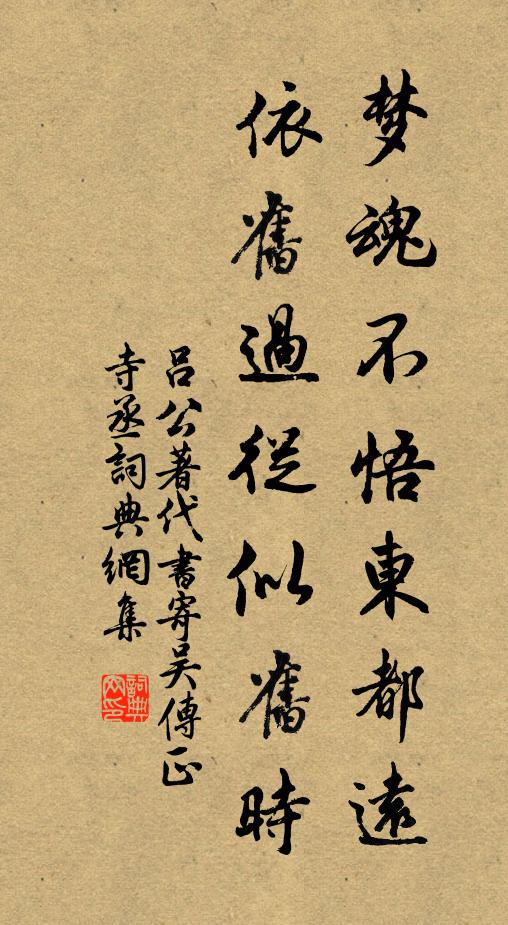 梦魂不悟東都遠
依舊過從似舊時
吕公著代書寄吴傳正
寺丞詞典網集
詞典網印